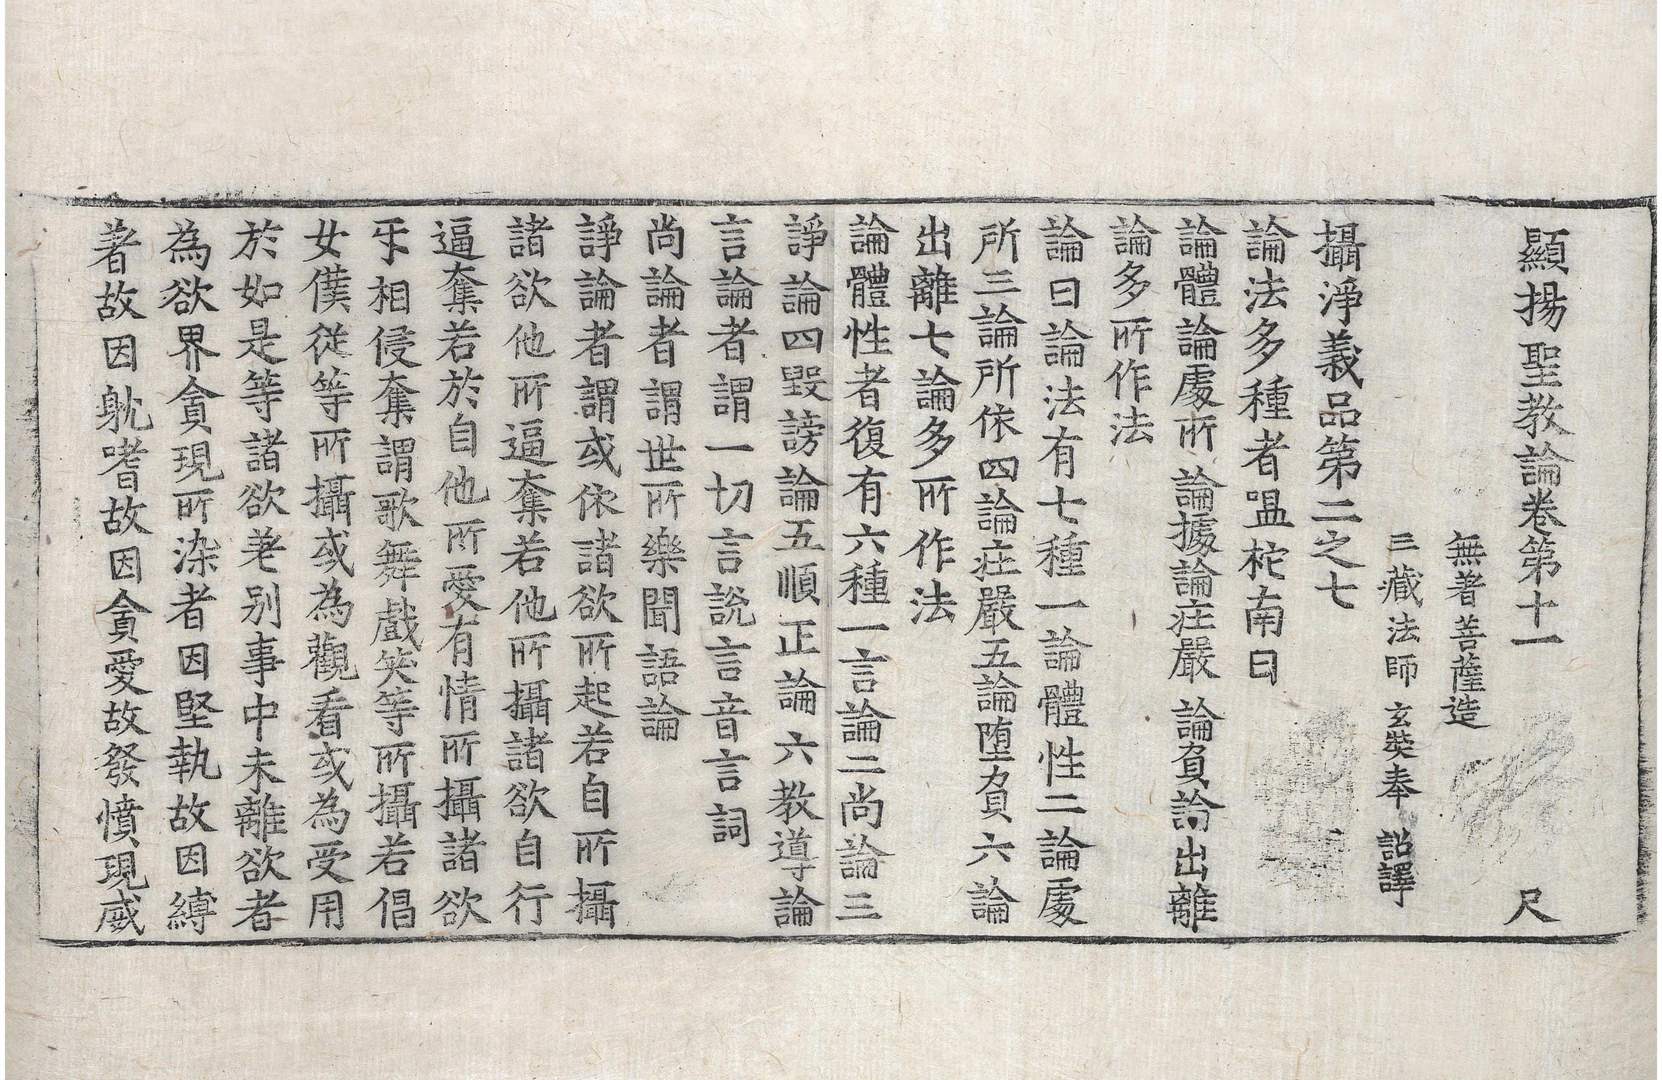 顯揚聖教論卷第十一 尺
無著菩薩造
三藏法師 玄奘奉 詔譯
攝淨義品第二之七
論法多種者嗢柁南曰
論體論處所 論據論莊嚴 論負論出離
論多所作法
論曰論法有七種一論體性二論處
所三論所依四論莊嚴五論墮負六論
出離七論多所作法
論體性者復有六種一言論二尚論三
諍論四毀謗論五順正論六教導論
言論者謂一切言說言音言詞
尚論者謂世所樂聞語論
諍論者謂或依諸欲所起若自所攝
諸欲他所逼奪若他所攝諸欲自行
逼奪若於自他所愛有情所攝諸欲
乎相侵奪謂歌舞戲笑等所攝若倡
女僕從等所攝或為觀看或為受用
於如是等諸欲差別事中未離欲者
為欲界貪現所染者因堅執故因縛
著故因躭嗜故因貪愛故發憤現威